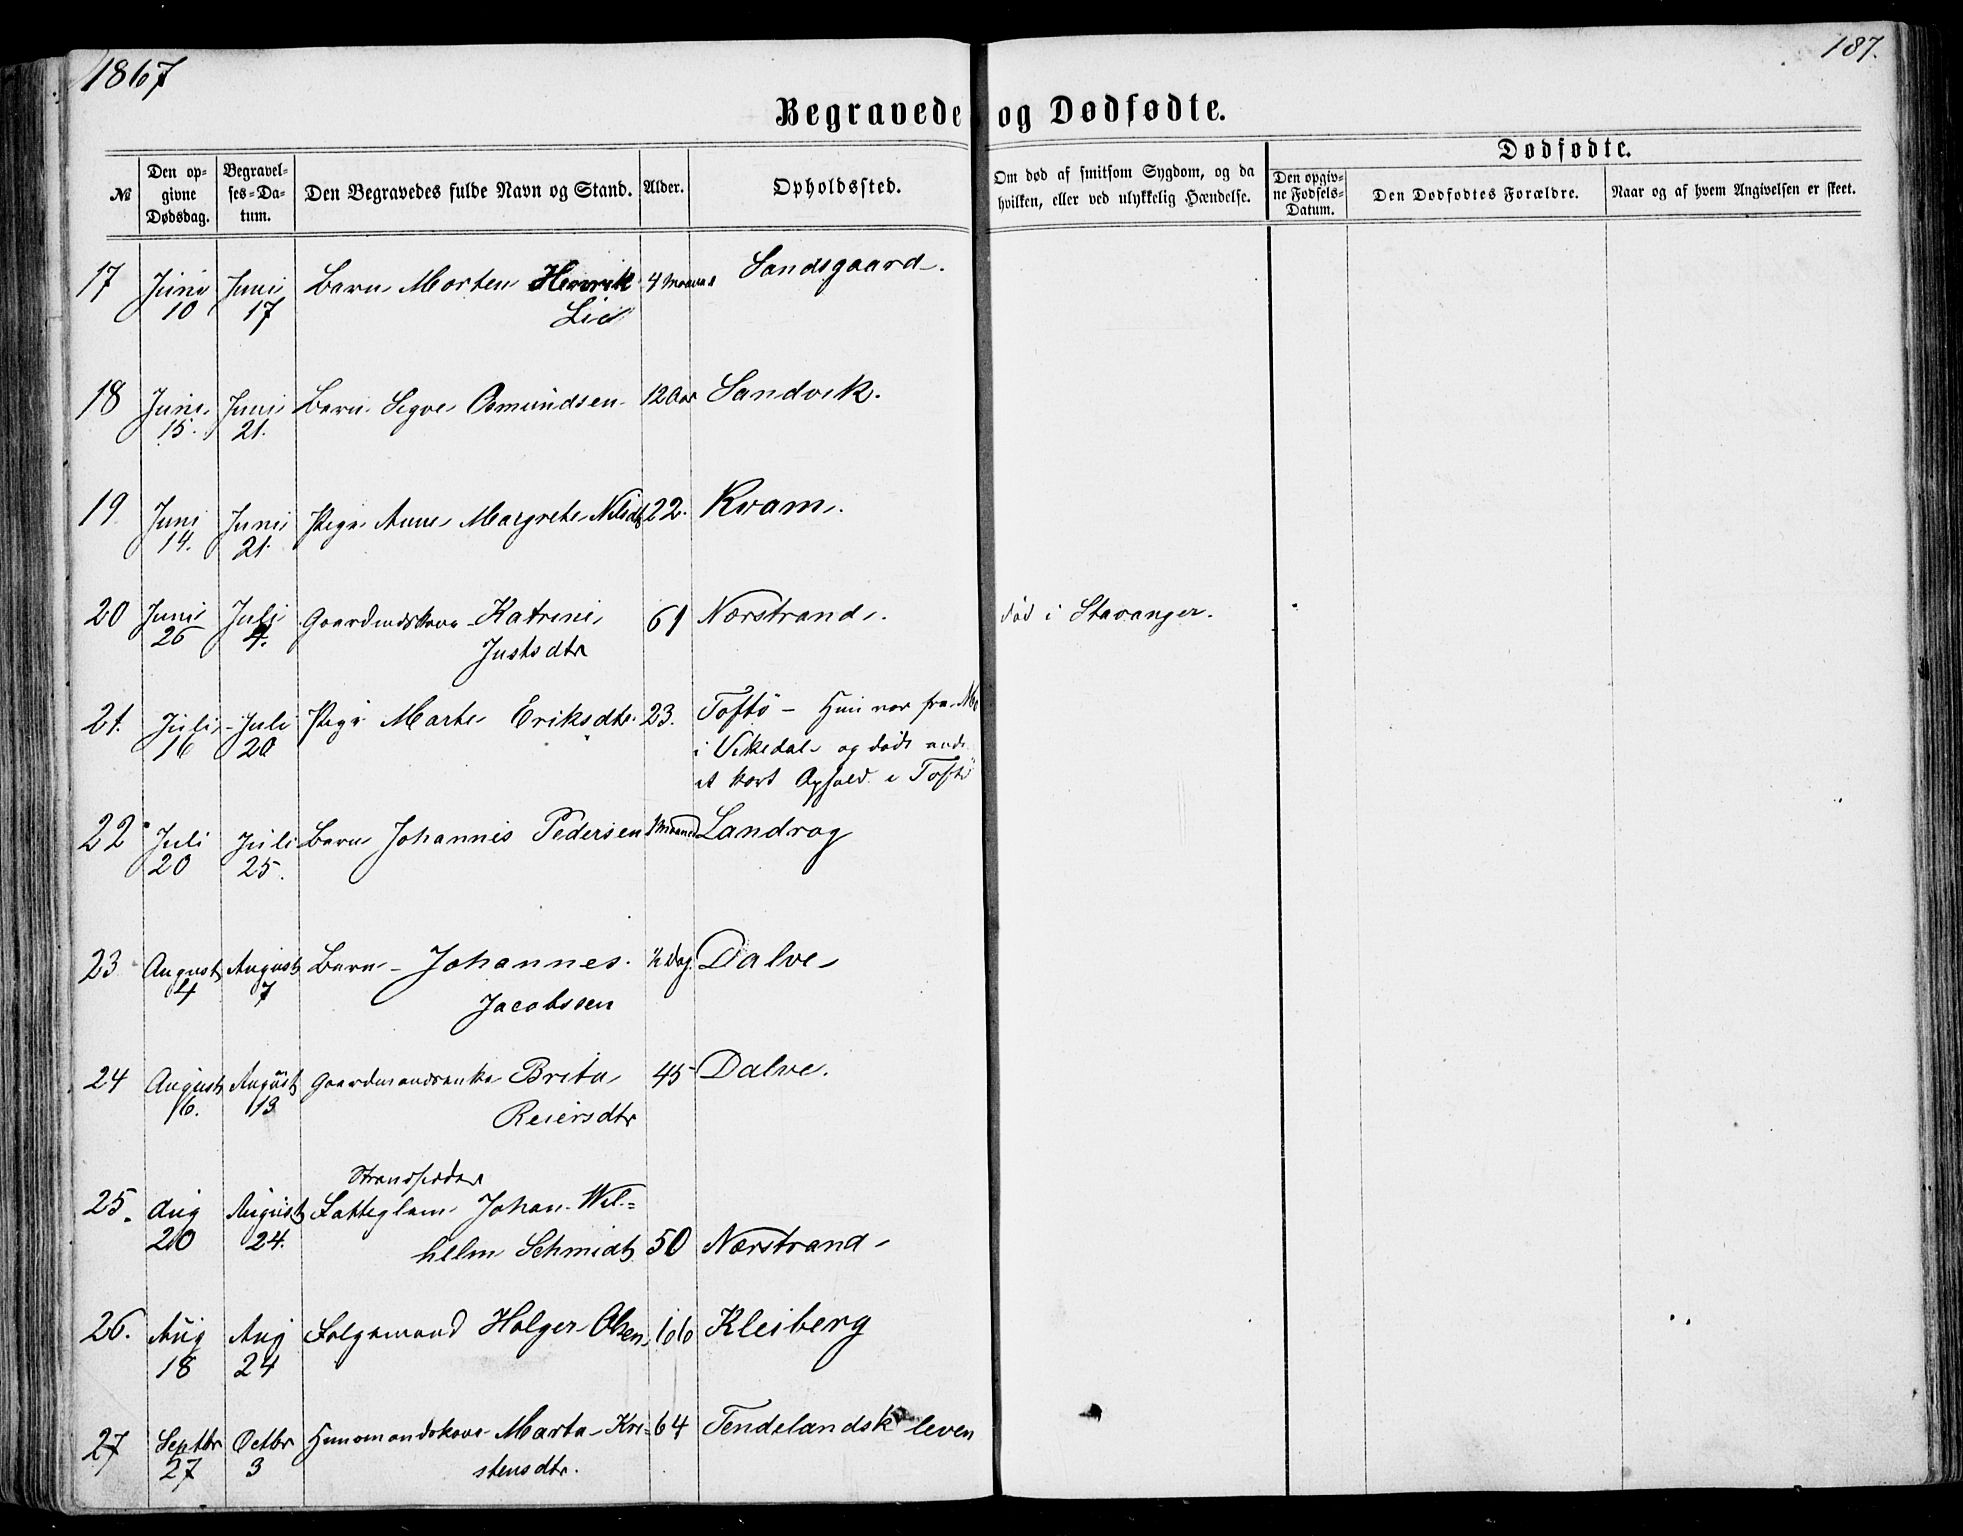 1867
187.
Begravede og Dødfødte.
№
Den op-
givne
Dødsdag.
Begravel-
ses-Da-
tum.
Den Begravedes fulde Navn og Stand.
Alder.
Opholdssted.
Om død af smitsom Sygdom, og da
hvilken, eller ved ulykkelig Hændelse.
Dødfødte.
Den opgiv-
ne Fødsels-
Datum.
Den Dødfødtes Forældre.
Naar og af hvem Angivelsen er skeet.
17 Juni Juni Barn Morten Henrik 4 Maaned Sandsgaard.
10 17 Lie
18 Juni Juni Barn Sigve Osmundsen 12 Aar Sandvik.
15. 21.
19 Juni Juni Pige Anne Margrete Nilsdtr 22. Kvam.
14. 21.
20 Juni Juli Gaardmdskone Katrine 61 Nærstrand. død i Stavanger.
26 4. Justsdtr
21. Juli Juli Pige Marte Eriksdtr 23. Toftø - Hun var fra Mo
16 20 i Vikedal og døde
et kort Ophold i Toftø
22 Juli Juli Barn Johannis Pedersen 1 Maaned Landrag
20 25.
23 August August Barn - Johannes ½ Dag Dalve
4 7 Jacobssen
24 August August Gaardmandsenke Brita 45 Dalve.
16. 19 Reiersdtr
Strandsidder
25. Aug August Fatteglem Johan Wil=
20 24. helm Schmidt 50 Nærstrand
26. Aug Aug Folgemand Holger Olsen 66 Kleiberg
18 24
27 Septbr Octbr Husmandskone Marta Kri= 64 Tendelandskleven
27 3 stensdtr.